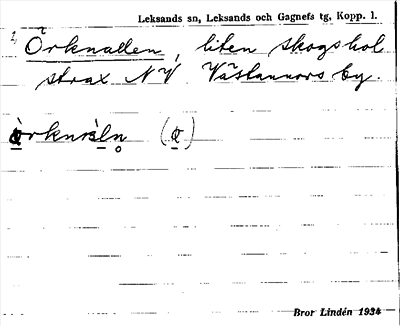 Leksands sn, Leksands och Gagnefs tg, Kopp. l.
1, Orknallen, liten skogshol
strax NV Västannors by.
Bror Lindén 1934